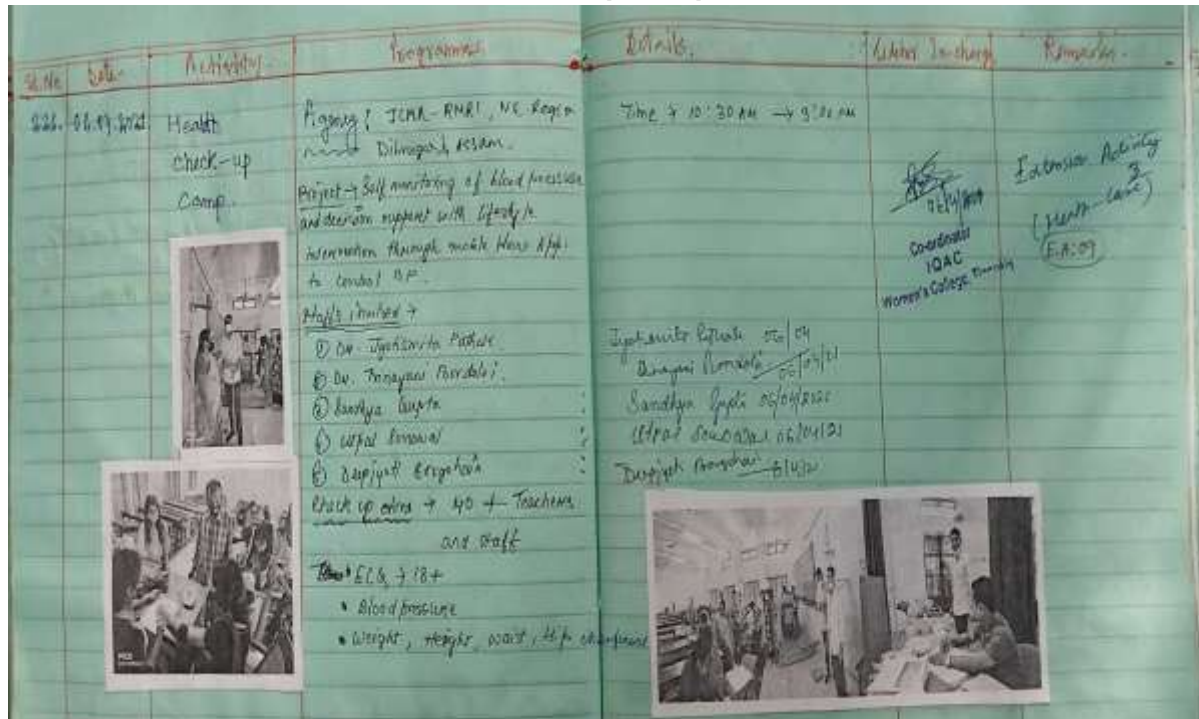 Sl.No Date Activity Programme Details Remarks
226. 06.04.2021 Health
check-up
Camp.
Agency : ICMR-RMRC, NE Region
Dibrugarh, Assam.
Project → Self monitoring of blood pressure
and decision support with lifestyle
intervention through mobile App
to control BP.
Staffs involved →
① Dr. Jyotismita Pathak
② Dr. Bordoloi.
③ Sandhya Gupta
④ Utpal Sonowal
⑤ Deepjyoti
Check up → 40 + Teachers
and Staff
ECG → 18+
• Blood pressure
• Weight, Height, waist, Hip
Time → 10:30 AM →
Jyotismita Pathak 06/04
06/04/21
Sandhya Gupta 06/04/2021
Utpal Sonowal 06/04/21
Deepjyoti 6/4/21
Co-ordinator
IQAC
Women's College,
Extension Activity
3
(Health-Care)
E.A:09